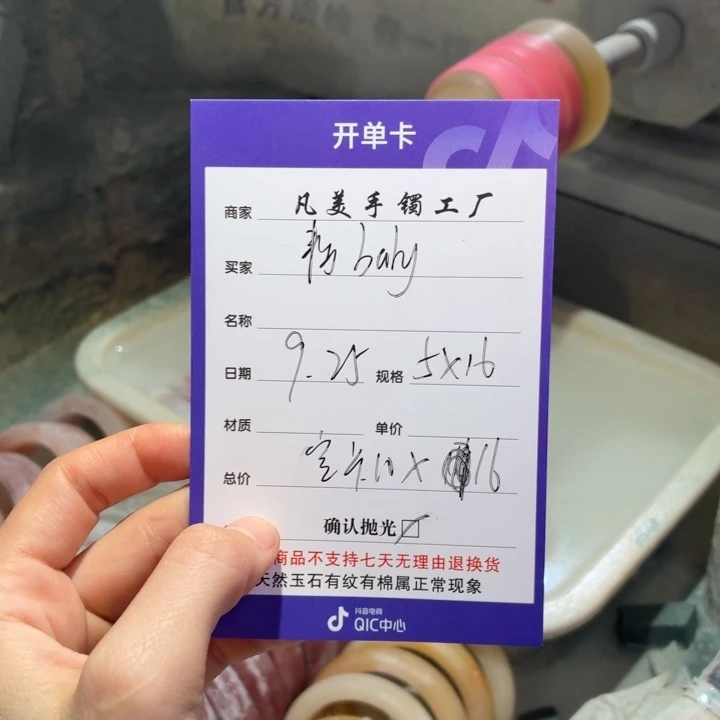 开单卡
商家 凡美手镯工厂
买家 baby
名称
日期 9.25 规格 5X16
材质 单价
总价 X 16
确认抛光
商品不支持七天无理由退换货
天然玉石有纹有棉属正常现象
抖音电商
QIC中心